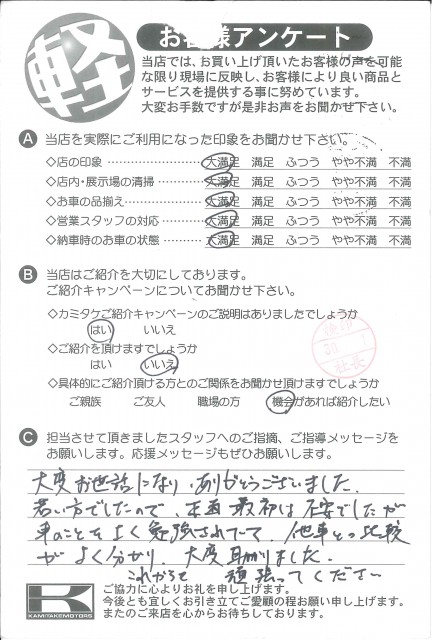 軽
お客様アンケート
当店では、お買い上げ頂いたお客様の声を可能
な限り現場に反映し、お客様により良い商品と
サービスを提供する事に努めています。
大変お手数ですが是非お声をお聞かせ下さい。
A 当店を実際にご利用になった印象をお聞かせ下さい。
◇店の印象 大満足 満足 ふつう やや不満 不満
◇店内・展示場の清掃 大満足 満足 ふつう やや不満 不満
◇お車の品揃え 大満足 満足 ふつう やや不満 不満
◇営業スタッフの対応 大満足 満足 ふつう やや不満 不満
◇納車時のお車の状態 大満足 満足 ふつう やや不満 不満
B 当店はご紹介を大切にしております。
ご紹介キャンペーンについてお聞かせ下さい。
◇カミタケご紹介キャンペーンのご説明はありましたでしょうか
はい いいえ
◇ご紹介を頂けますでしょうか
はい いいえ
◇具体的にご紹介頂ける方とのご関係をお聞かせ頂けますでしょうか
ご親族 ご友人 職場の方 機会があれば紹介したい
検印
社長
C 担当させて頂きましたスタッフへのご指摘、ご指導メッセージを
お願いします。応援メッセージもぜひお願いします。
大変お世話になり、ありがとうございました。
若い方でしたので、正直最初は不安でしたが
車のことをよく勉強されていて、他車との比較
がよく分かり、大変助かりました。
これからも頑張ってください
K
KAMITAKEMOTORS
ご協力に心よりお礼を申し上げます。
今後とも宜しくお引き立てご愛顧の程お願い申し上げます。
またのご来店を心からお待ちしております。